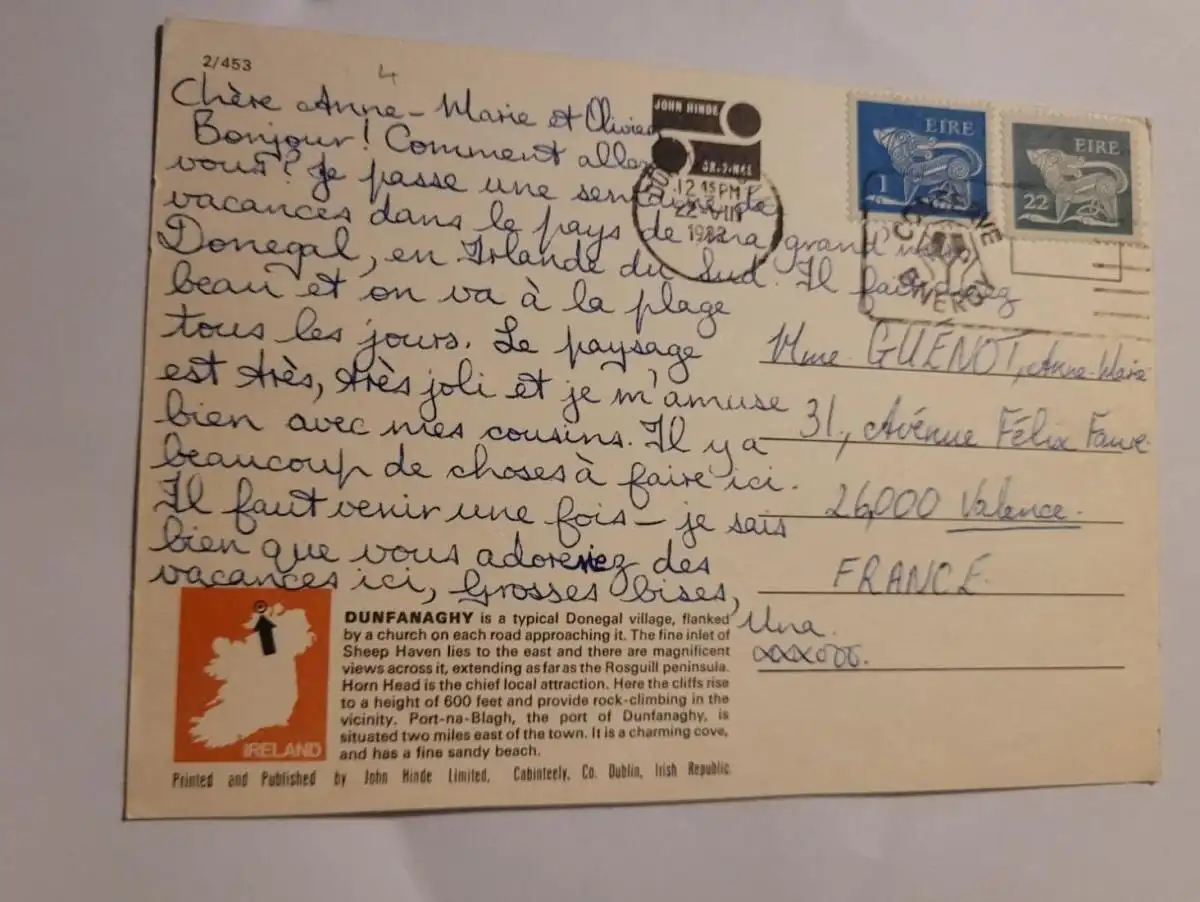 2/453
4
Chère Anne-Marie et Olivier
Bonjour! Comment allez
vous? Je passe une semaine de
vacances dans le pays de ma grand'mère
Donegal, en Irlande du Sud. Il fait assez
beau et on va à la plage
tous les jours. Le paysage
est très, très joli et je m'amuse
bien avec mes cousins. Il y a
beaucoup de choses à faire ici.
Il faut venir une fois – je sais
bien que vous adoreriez des
vacances ici, Grosses bises,
Una.
xxxooo.
JOHN HINDE
12 15 PM
22 VIII
1982
EIRE
1
EIRE
22
Mme. GUÉNOT, Anne-Marie
31, Avénue Félix Faure
26,000 Valence.
FRANCE.
IRELAND
DUNFANAGHY is a typical Donegal village, flanked
by a church on each road approaching it. The fine inlet of
Sheep Haven lies to the east and there are magnificent
views across it, extending as far as the Rosguill peninsula.
Horn Head is the chief local attraction. Here the cliffs rise
to a height of 600 feet and provide rock-climbing in the
vicinity. Port-na-Blagh, the port of Dunfanaghy, is
situated two miles east of the town. It is a charming cove,
and has a fine sandy beach.
Printed and Published by John Hinde Limited, Cabinteely, Co. Dublin, Irish Republic.